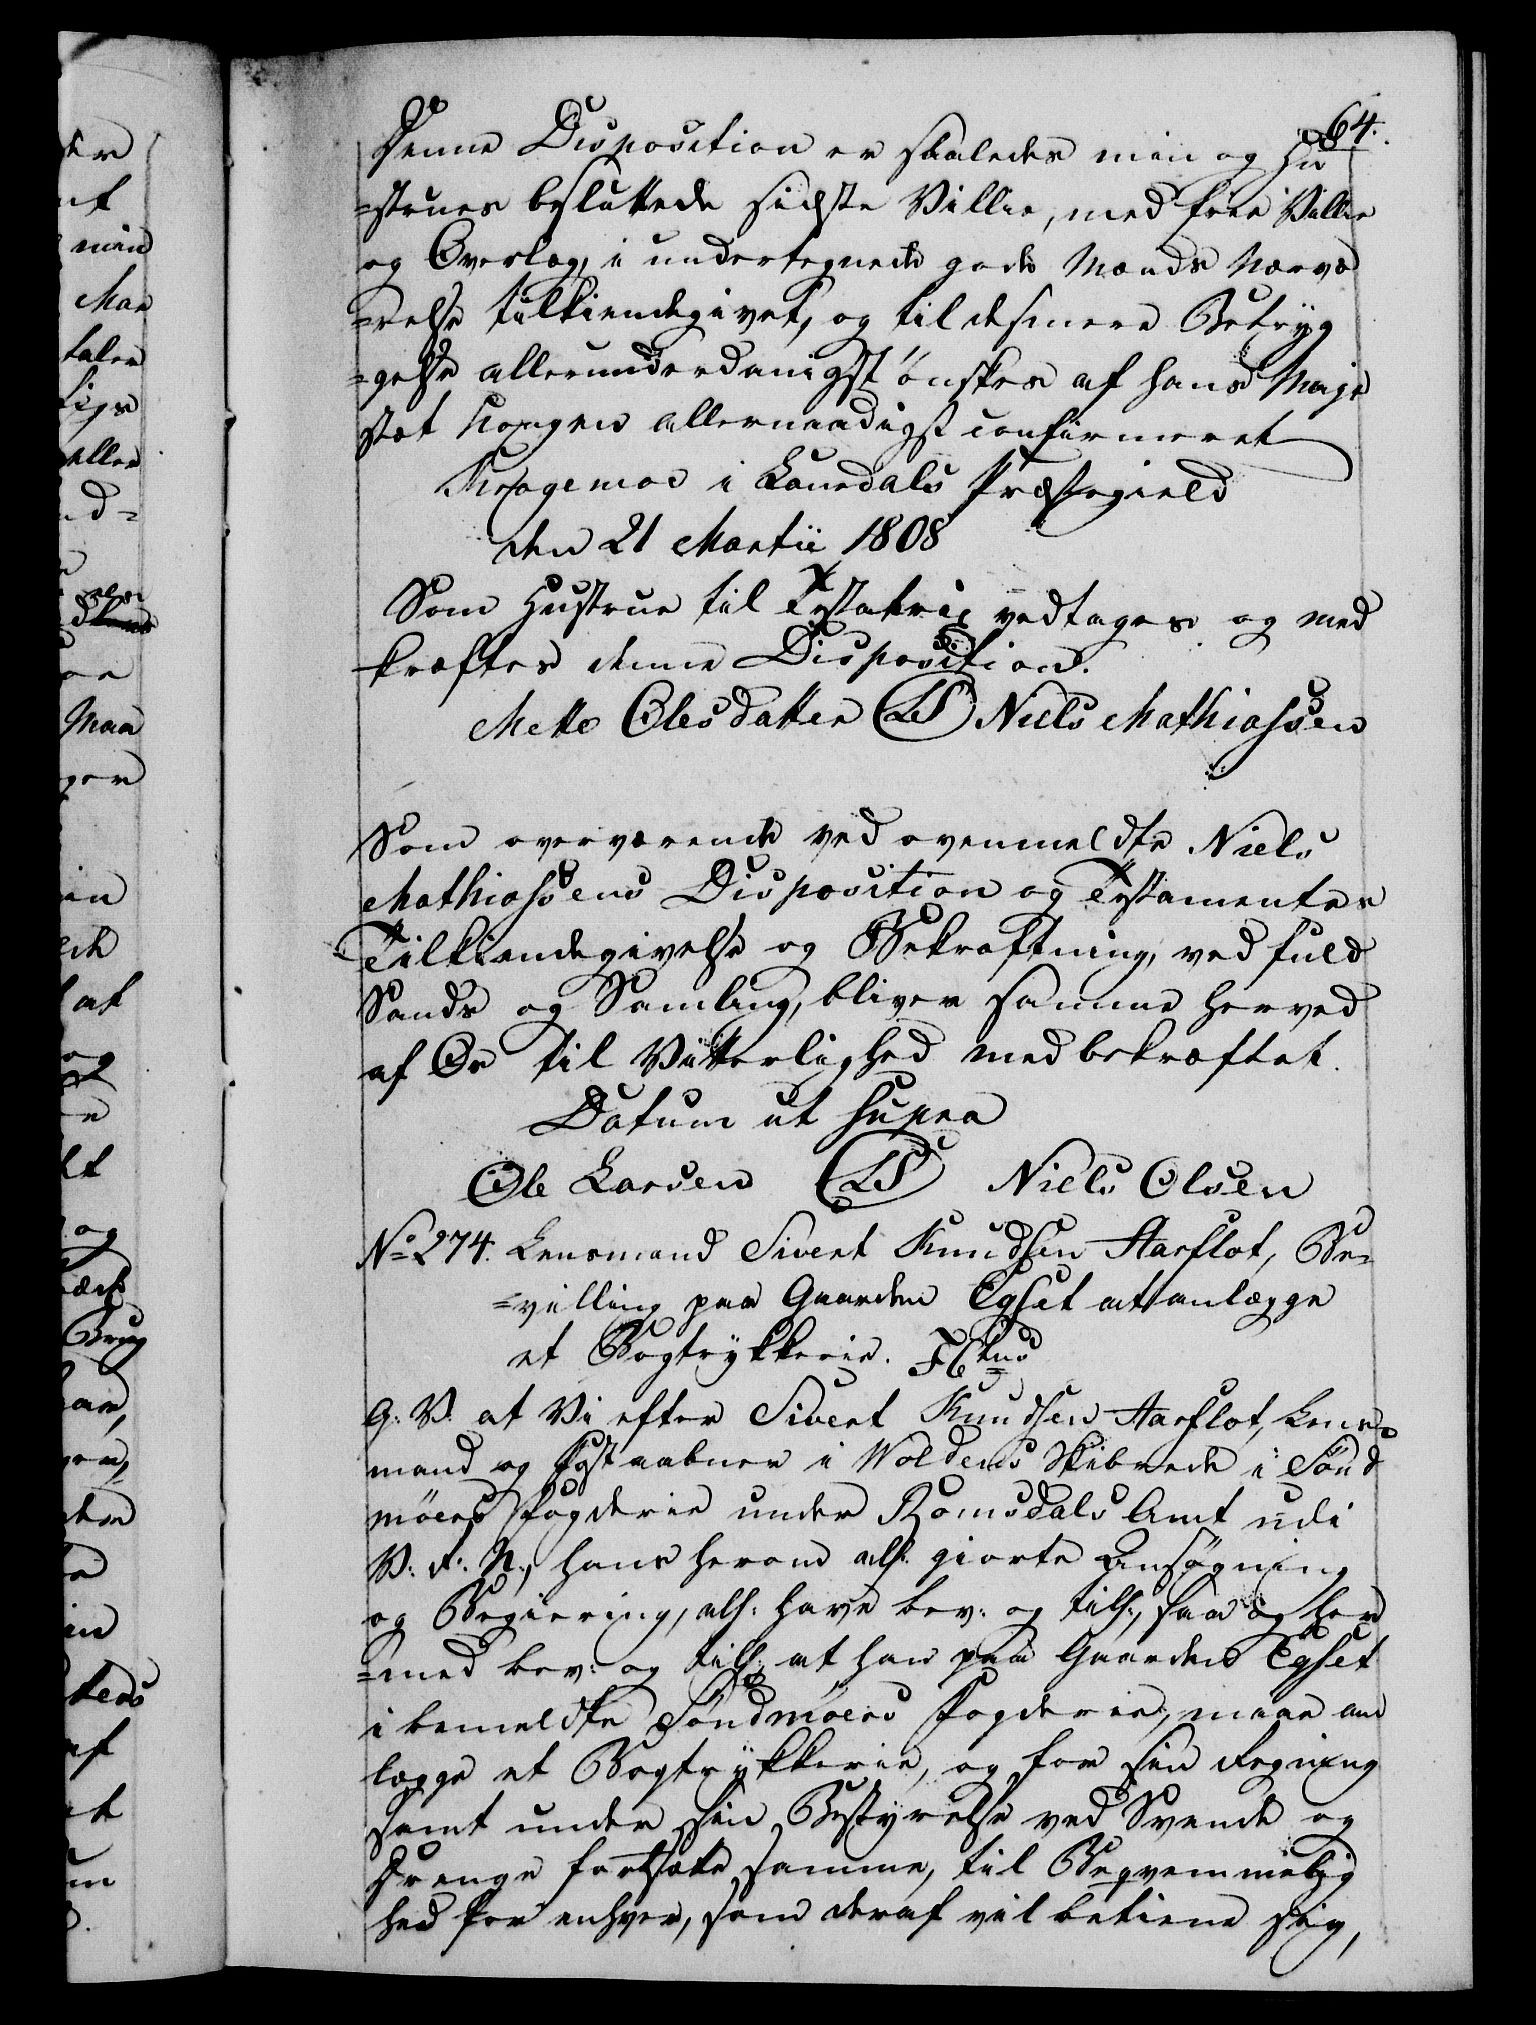 64.
Denne Disposition er saaledes min og Hu
=strues besluttede sidste Villie, med frie Villie
og Overlæg, i undertegnede gode Mænds Nærvæ
=relse tilkiendegivet, og til desmere Betryg
=gelse allerunderdanigst ønskes af Hans Maje
stæt Kongen allernaadigst confirmeret
Krogemoe i Laurdals Præstegield
den 21 Martii 1808
Som Hustrue til Testatrix vedtages og med
kræftes denne Disposition.
Mette Olesdatter (LS) Niels Mathiassen
Som overværende ved ovenmeldte Niels
Mathiassens Disposition og Testamentes
Tilkiendegivelse og Bekræftning, ved fuld
Sands og Samling, bliver samme herved
af Os til Vitterlighed medbekræftet.
Datum ut supra
Ole Larsen (LS) Niels Olsen
No 274. Lensmand Sivert Knudsen Aarflot, Be=
=villing paa Gaarden Egset at anlægge
et Bogtrykkerie.
G: V: at Vi efter Sivert Knudsen Aarflot, Lens=
mand og Postaabner i Woldens Skibrede i Sønd
möers Fogderie under Romsdals Amt udi
V: R: N:, hans herom als: giorte Ansøgning
og Begiering, als: have bev: og tills:, saa og her
=med bev: og tills: at han paa Gaarden Egset
i bemeldte Söndmöers Fogderie, maae an
lægge et Bogtrykkerie, og for sin Regning
samt under sin Bestyrelse ved Svende og
Drenge fortsætte samme, til Beqvemmelig
hed for enhver, som deraf vil betiene sig,